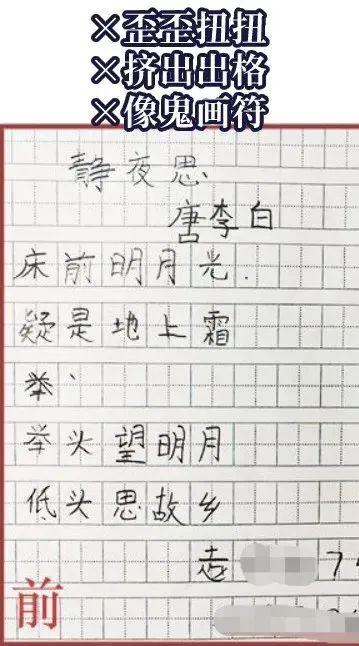 ×歪歪扭扭
×挤出出格
×像鬼画符
静夜思
唐李白
床前明月光.
疑是地上霜
举、
举头望明月
低头思故乡
前